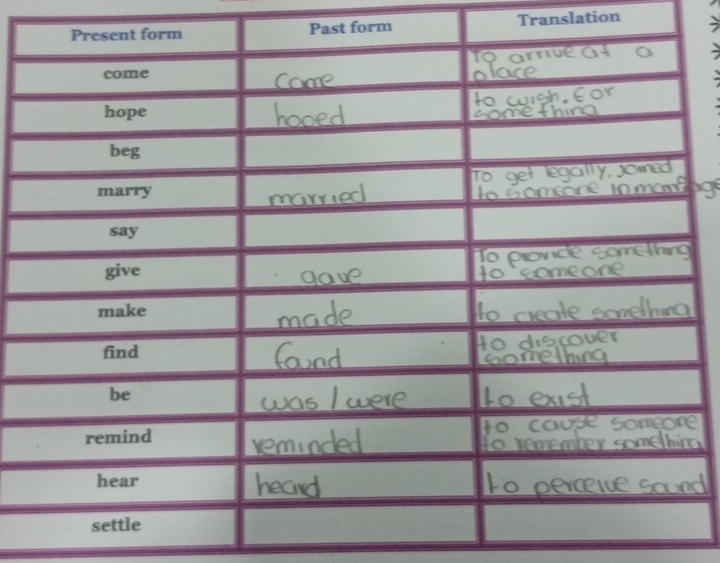 Present form Past form Translation
come came To arrive at a
place
hope hoped to wish. for
something
beg
marry married To get legally. joined
to someone in marriage
say
give gave To provide something
to someone
make made to create something
find found to discover
something
be was / were to exist
remind reminded to cause someone
to remember something
hear heard to perceive sound
settle